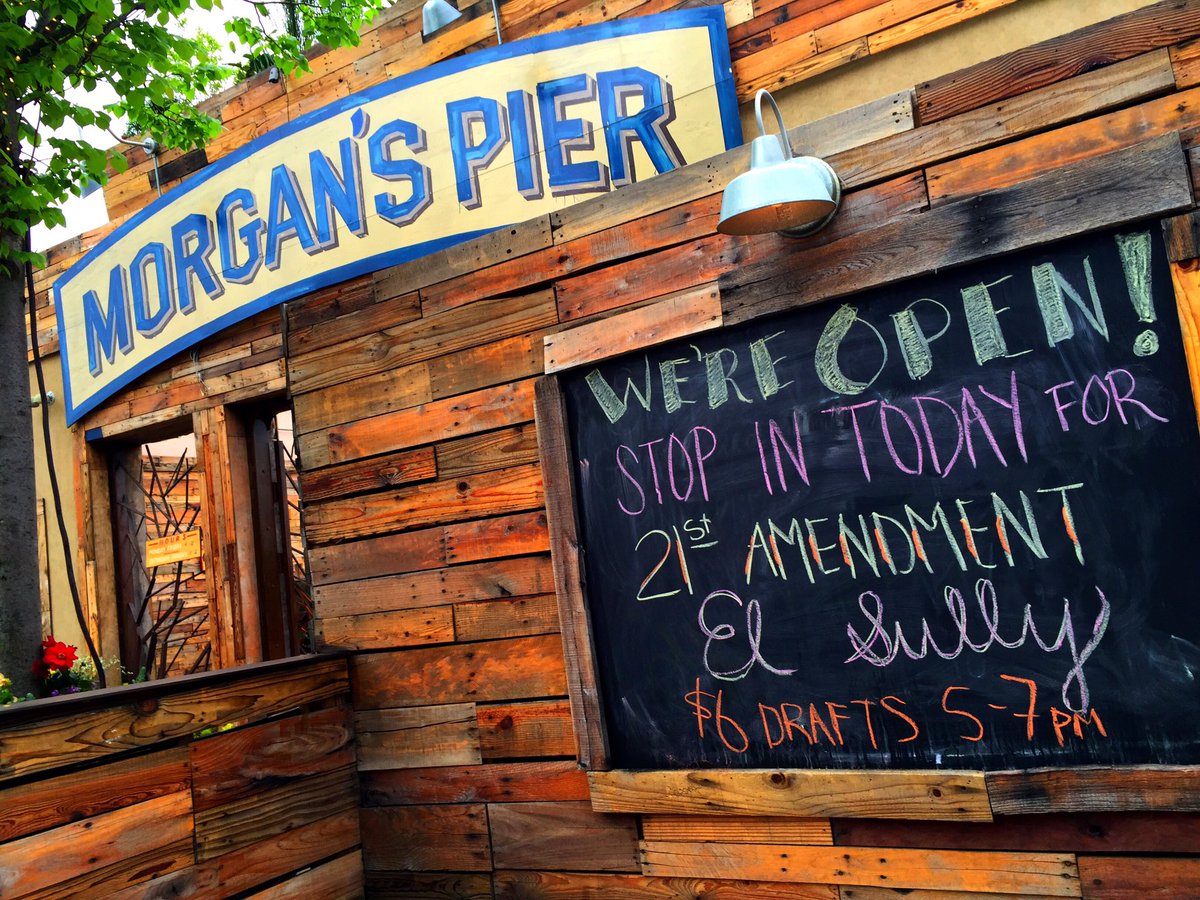 MORGAN'S PIER
WE'RE OPEN!
STOP IN TODAY FOR
21st AMENDMENT
El Sully
$6 DRAFTS 5-7PM
HOURS